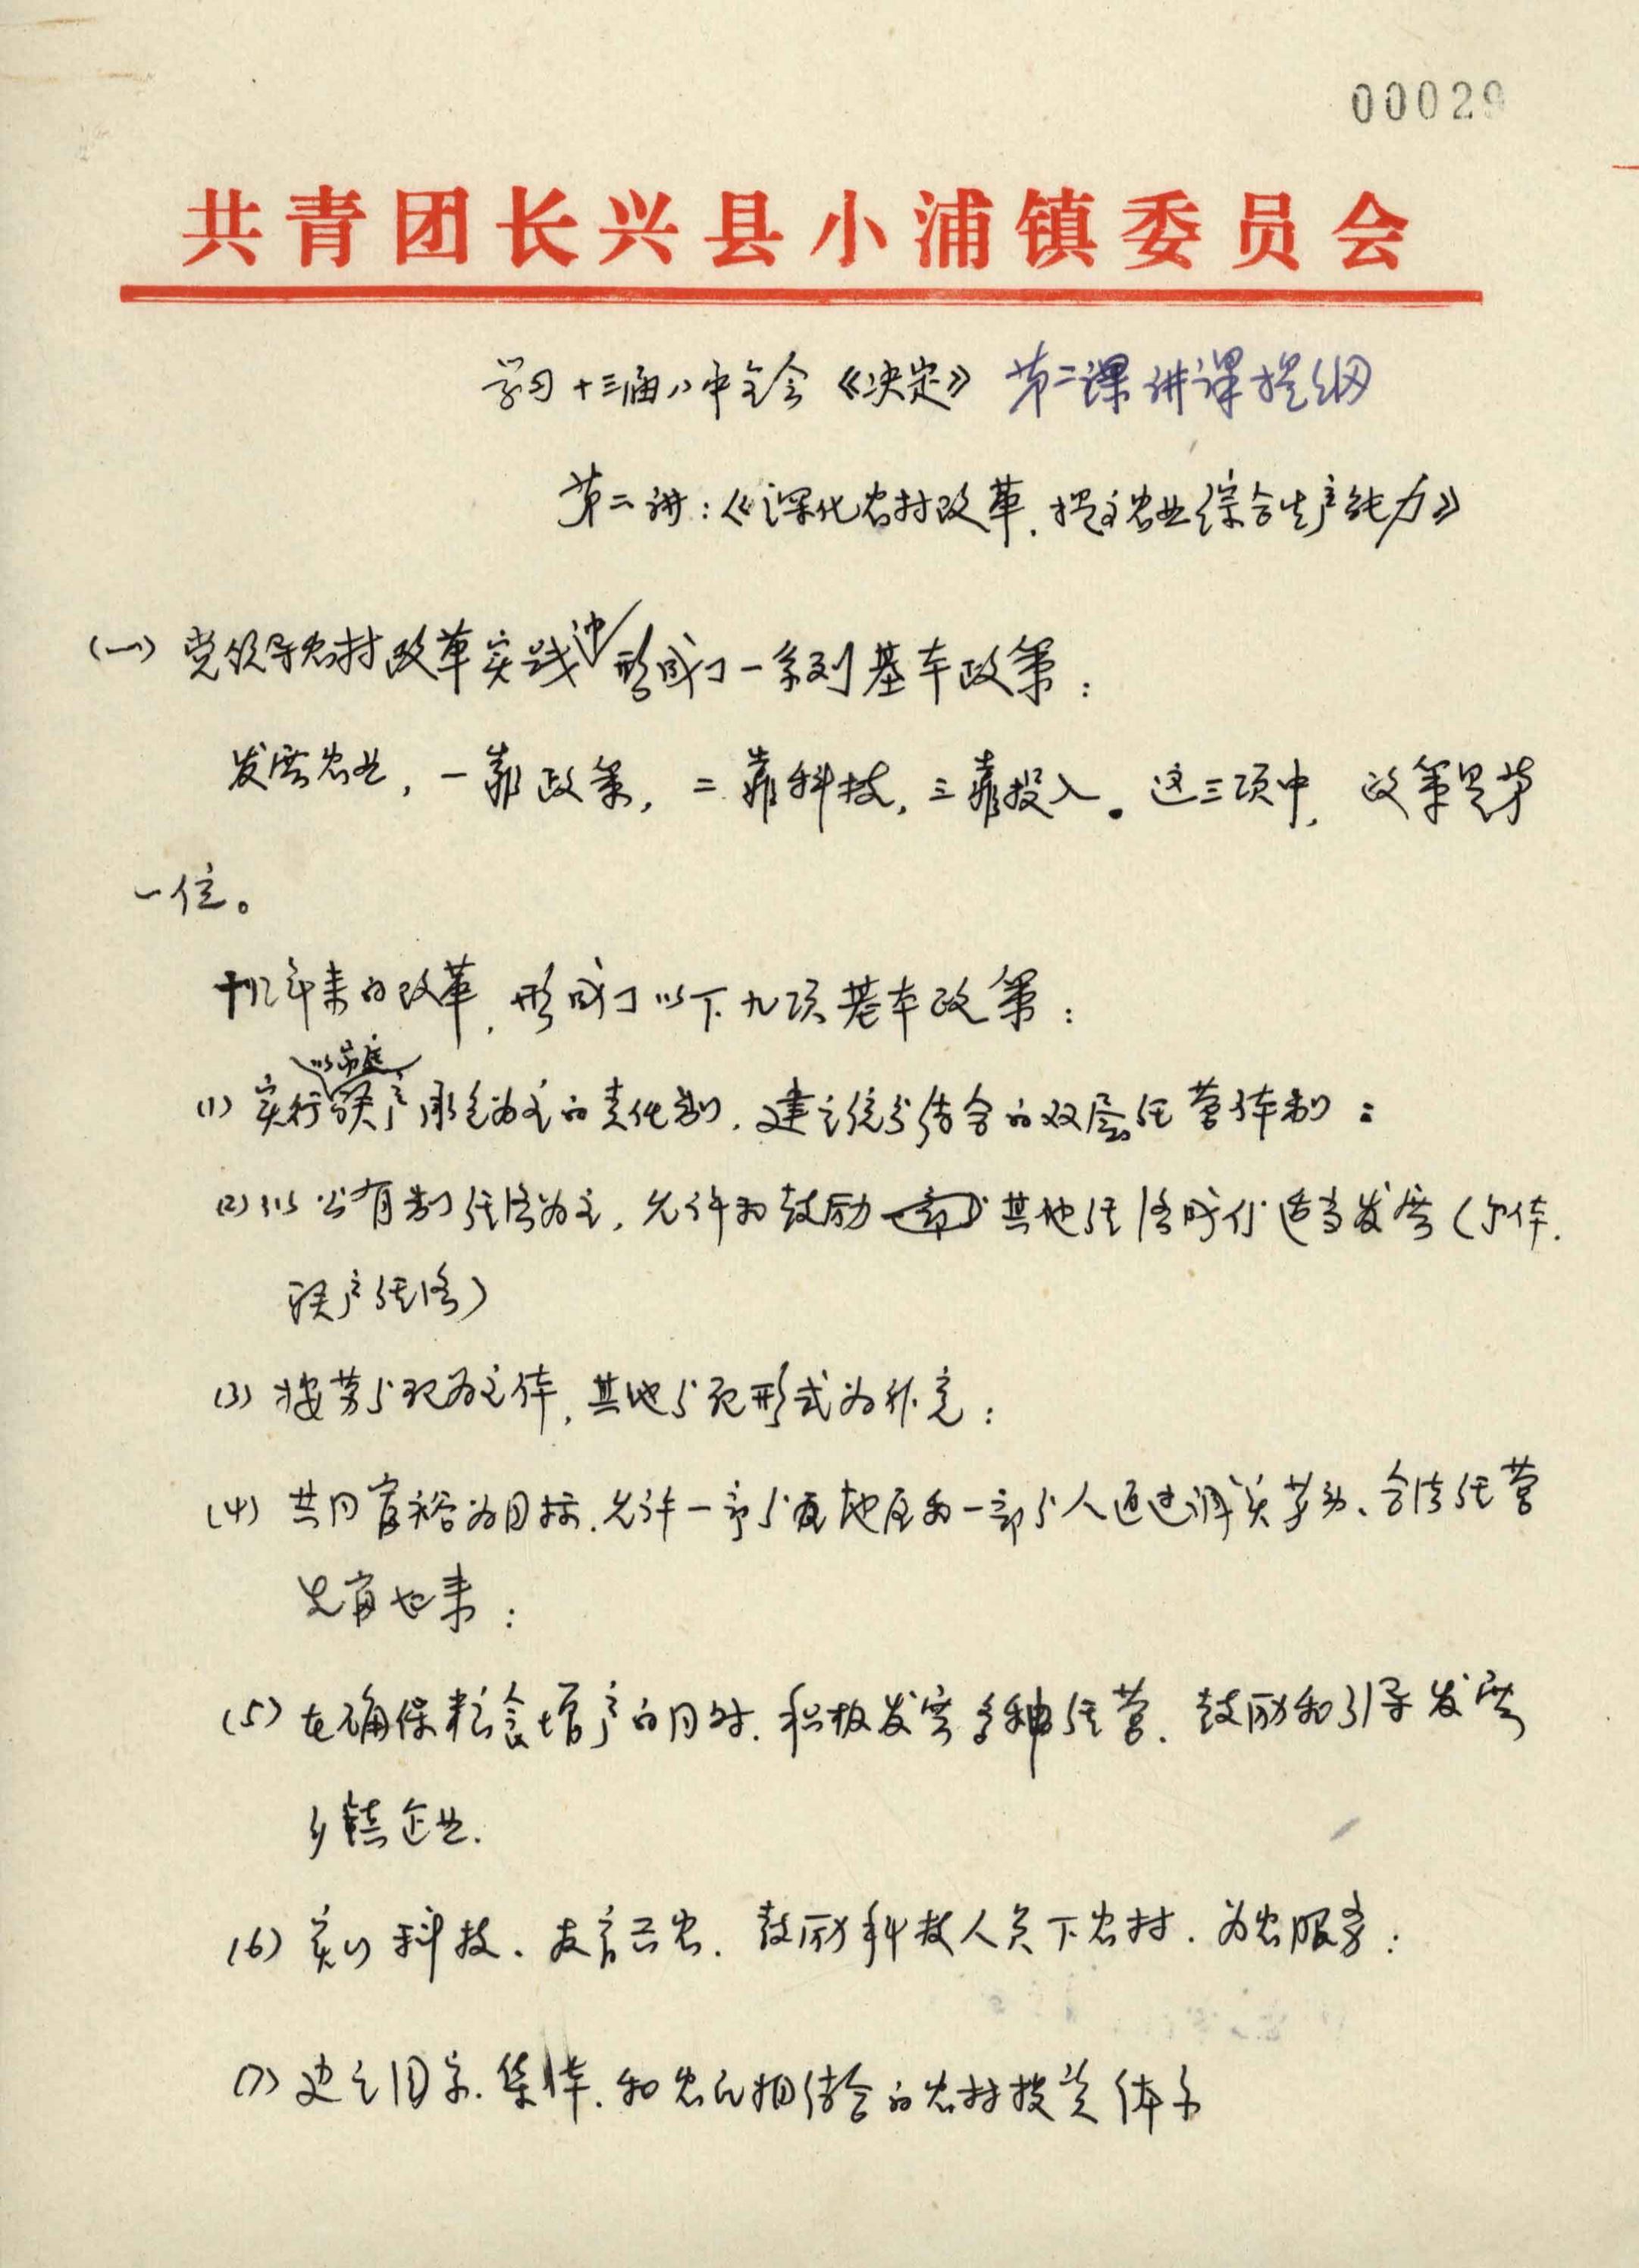 00029
共青团长兴县小浦镇委员会
学习十三届八中全会《决定》第二课讲课提纲
第二讲:《深化农村改革,提高农业综合生产能力》
(一)党领导农村改革实践中形成了一系列基本政策:
发展农业,一靠政策,二靠科技,三靠投入。这三项中,政策是第
一位。
十几年来的改革,形成了以下九项基本政策:
以家庭
(1)实行联产承包为主的责任制,建立统分结合的双层经营体制:
(2)以公有制经济为主,允许和鼓励其他经济成份适当发展(个体.
联产经济)
(3)按劳分配为主体,其他分配形式为补充:
(4)共同富裕为目标.允许一部分地区和一部分人通过诚实劳动、合法经营
先富起来:
(5)在确保粮食增产的同时.积极发展多种经营.鼓励和引导发展
乡镇企业.
(6)实行科技、教育兴农.鼓励科技人员下农村.为农服务:
(7)建立国家.集体.和农民相结合的农村投资体系